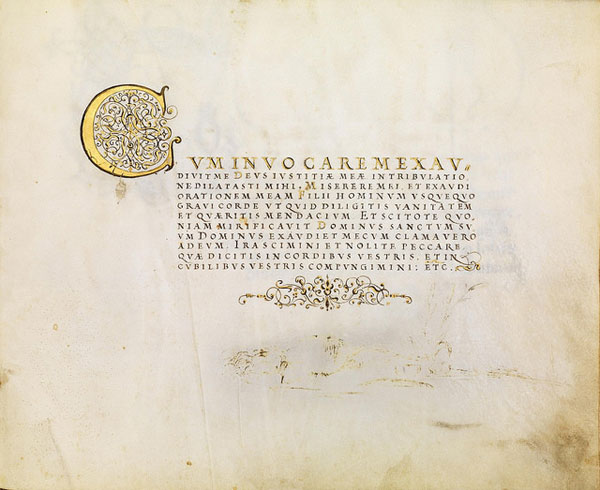 CUM INVOCAREM EXAU„
DIVIT ME DEUS IUSTITIÆ MEÆ IN TRIBULATIO
NE DILATASTI MIHI. MISERERE MEI, ET EXAUDI
ORATIONEM MEAM FILII HOMINUM USQUEQUO
GRAVI CORDE UT QUID DILIGITIS VANITATEM
ET QUÆRITIS MENDACIUM. ET SCITOTE QUO,
NIAM MIRIFICAVIT DOMINUS SANCTUM SU,
UM DOMINUS EXAUDIET ME CUM CLAMAVERO
AD EUM. IRASCIMINI ET NOLITE PECCARE
QUÆ DICITIS IN CORDIBUS VESTRIS, ET IN
CUBILIBUS VESTRIS COMPUNGIMINI: ETC.